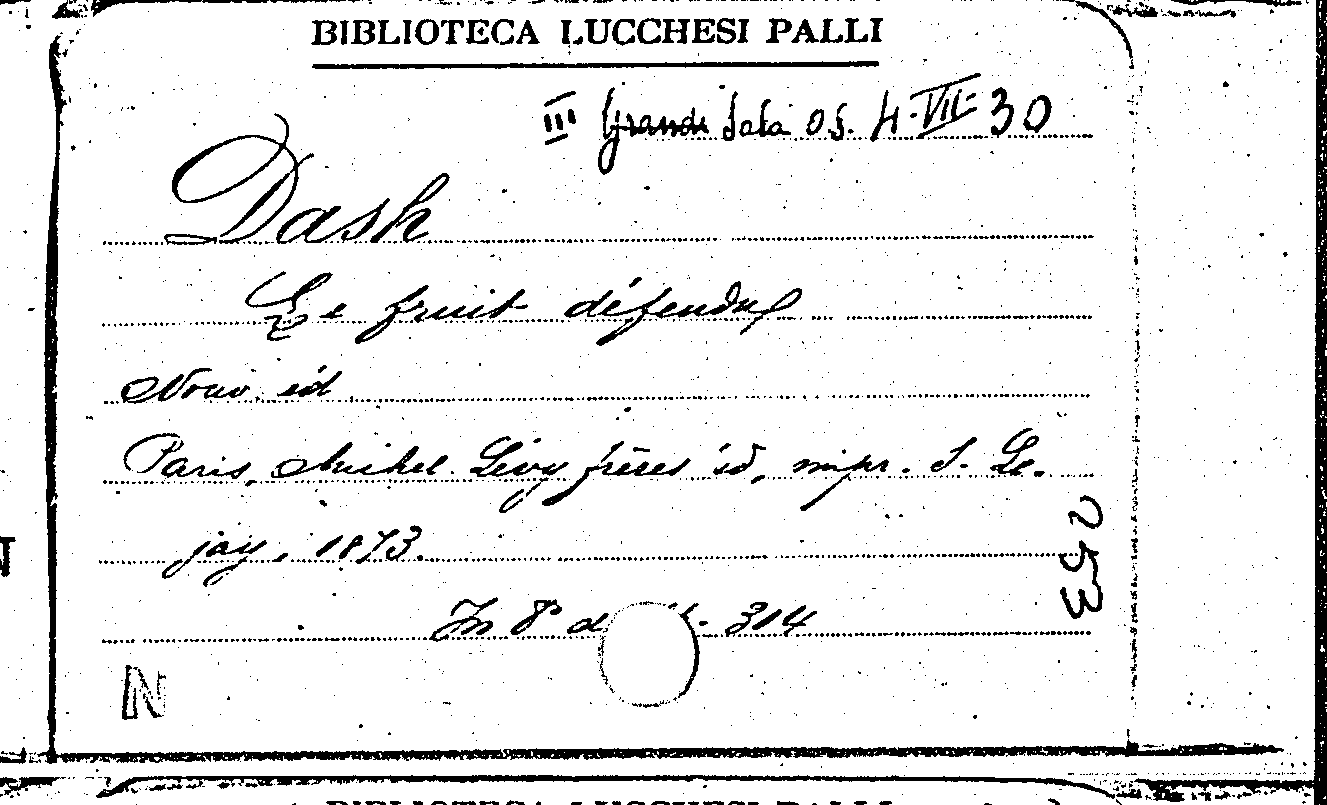 BIBLIOTECA LUCCHESI PALLI
III Grande Sala 05. 4-VII-30
Dash
Le fruit défendu
Nouv. éd.
Paris, Michel Lévy frères éd, impr. J. Le-
jay, 1873.
253
In 8° d - 314
N
BIBLIOTECA LUCCHESI PALLI